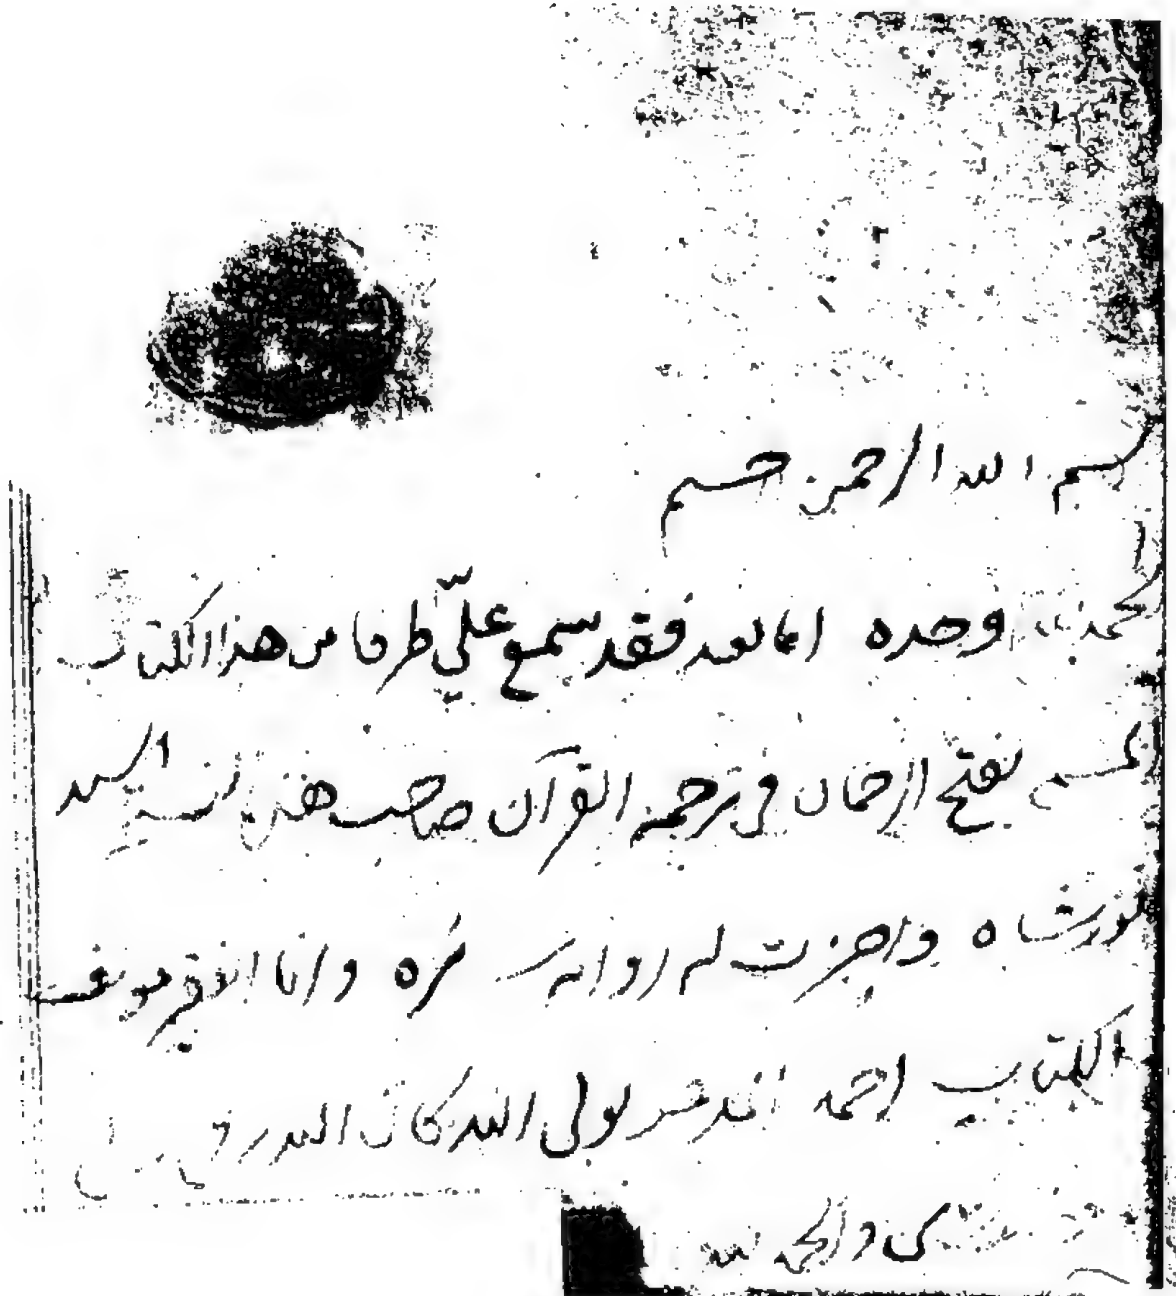 بسم الله الرحمن حسم
الحمد لله وحده اما بعد فقد سمع عليّ طرفا من هذا الكتاب
المسمى بفتح الرحمان في ترجمة القرآن صاحب هذه النسخة السيد
نور شاه واجزت له روايه سائره وانا الفقير مولف
الكتاب احمد المدعو بولى الله كان الله له في
والحمد لله